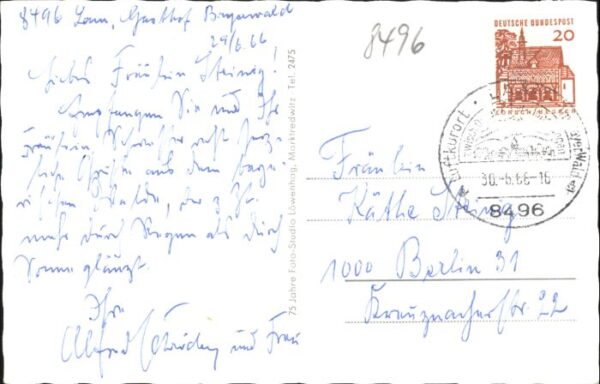 8496 Lam, Gasthof Bayerwald
29/6.66
Liebes Fräulein Steinig!
Empfangen Sie und Ihr
Fräulein Schwester recht herz-
liche Grüße aus dem baye-
rischen Walde, der z. Zt.
mehr durch Regen als durch
Sonne glänzt.
Ihre
Alfred und Frau
75 Jahre Foto-Studio Löwenhag, Marktredwitz, Tel. 2475
8496
DEUTSCHE BUNDESPOST
20
LORSCH/HESSEN
Luftkurort
30.-6.66-16
8496
Fräulein
Käthe Steinig
1000 Berlin 31
Kreuznacherstr. 22